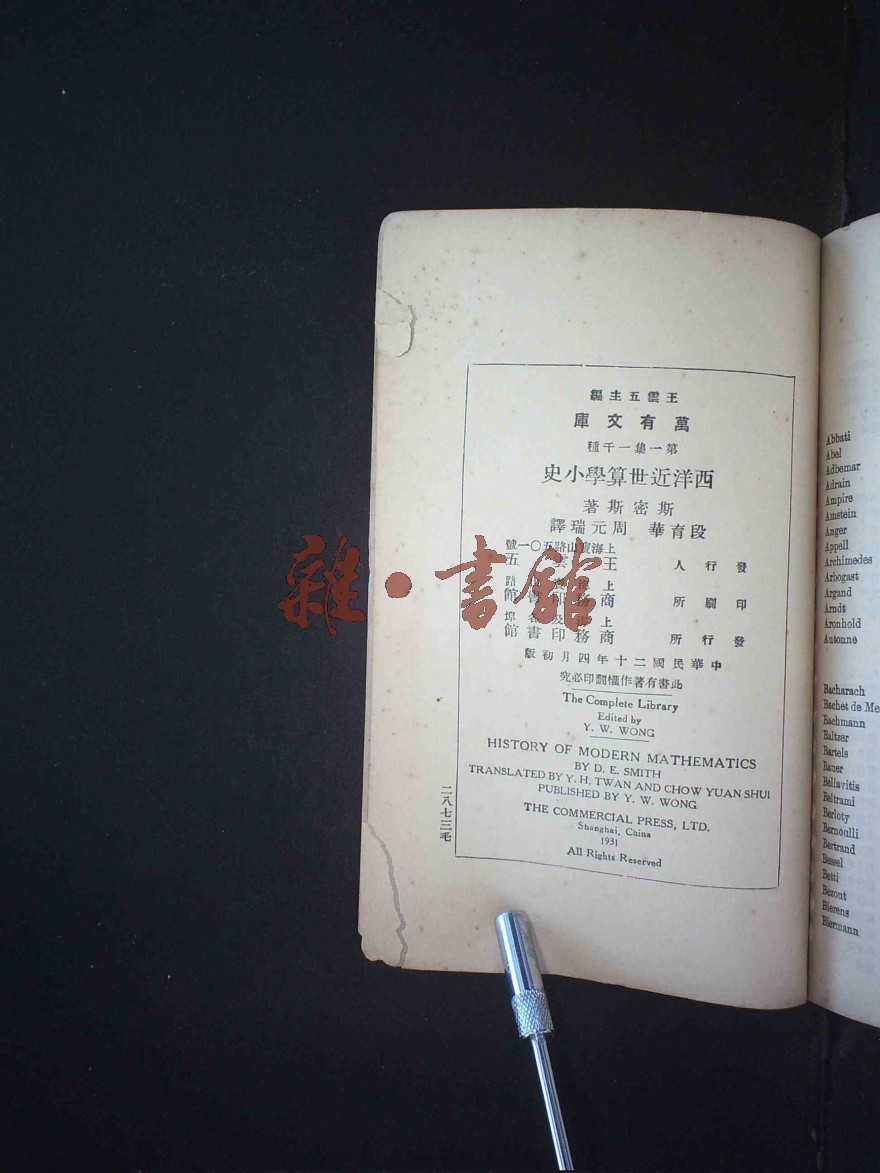 王雲五主編
萬有文庫
第一集一千種
西洋近世算學小史
斯密斯著
段育華 周元瑞譯
上海寶山路五〇一號
發行人 王雲五
上海 路
印刷所 商務印書館
上海及各埠
發行所 商務印書館
中華民國二十年四月初版
此書有著作權翻印必究
The Complete Library
Edited by
Y. W. WONG
HISTORY OF MODERN MATHEMATICS
BY D. E. SMITH
TRANSLATED BY Y. H. TWAN AND CHOW YUAN SHUI
PUBLISHED BY Y. W. WONG
THE COMMERCIAL PRESS, LTD.
Shanghai, China
1931
All Rights Reserved
二八七三毛
雜·書館
Abbati
Abel
Adhemar
Adrain
Ampire
Amstein
Anger
Appell
Archimedes
Arbogast
Argand
Arndt
Aronhold
Autonne
Bacharach
Bachet de Me
Bachmann
Baltzer
Bartels
Bauer
Bellavitis
Beltrami
Berloty
Bernoulli
Bertrand
Bessel
Betti
Bezout
Bierens
Biermann